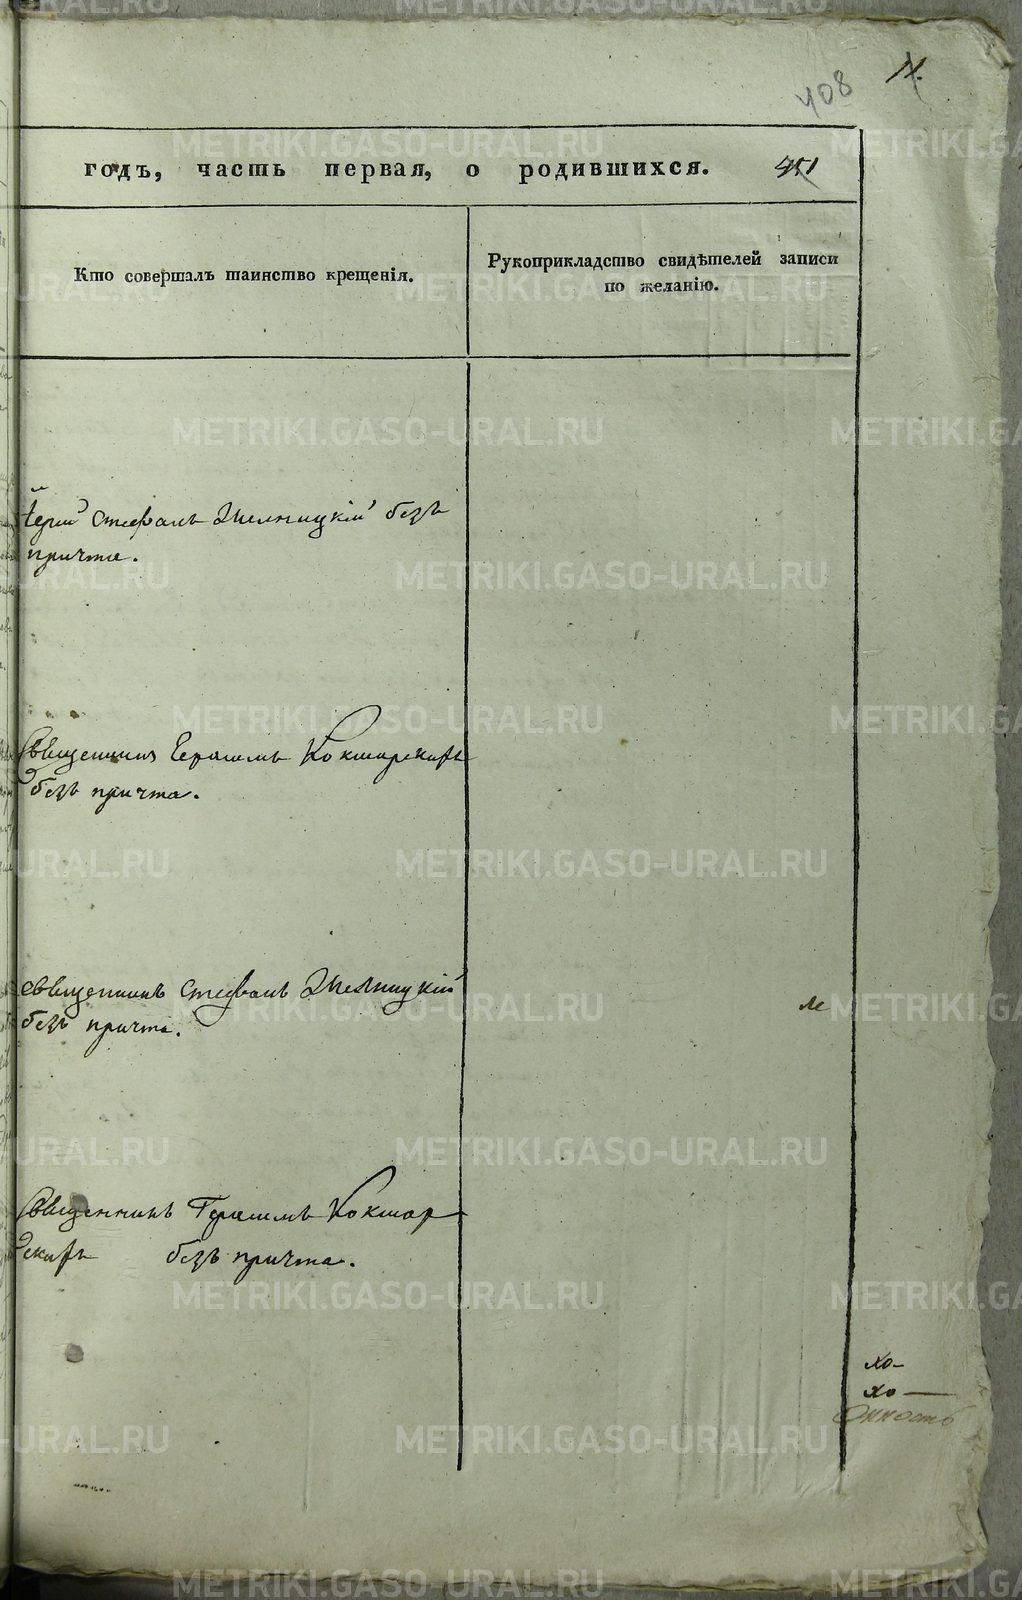 408
11.
годъ, часть первая, о родившихся. 451
Кто совершалъ таинство крещенія. Рукоприкладство свидѣтелей записи
по желанію.
Іерей Стефанъ без
причта.
Священникъ Герасимъ Кокшарскихъ
безъ причта.
Священникъ Стефанъ
безъ причта.
Священникъ Герасимъ Кокшар
скихъ безъ причта.
хо-
хо —
METRIKI.GASO-URAL.RU